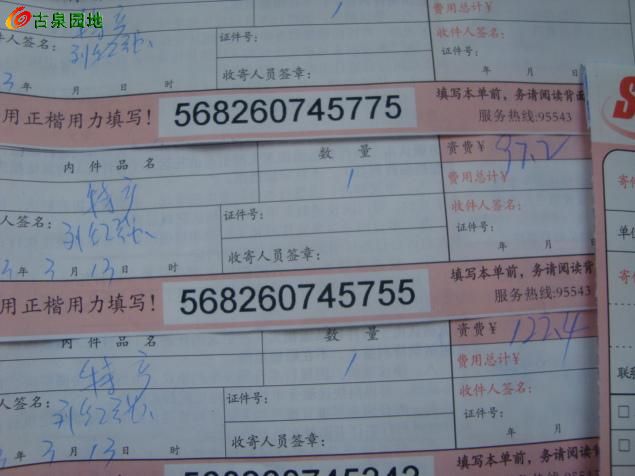 古泉园地
1
费用总计¥
人签名:
特产
证件号:
收件人签名:
证件号:
3年 月 日 时
收寄人员签章:
年 月
用正楷用力填写!
568260745775
填写本单前,务请阅读背面
服务热线:95543
内件品名
数量
资费¥ 97.2
特产
1
费用总计¥
人签名:
证件号:
收件人签名:
证件号:
3年 3月 13日 时
收寄人员签章:
年 月
用正楷用力填写!
568260745755
填写本单前,务请阅读背
服务热线:95543
内件品名
数量
资费¥ 127.4
特产
1
费用总计¥
人签名:
证件号:
收件人签名:
证件号:
3月 13日 时
收寄人员签章:
年 月 日
填写本单前,务请阅读
S
寄件
单位
寄件
联系